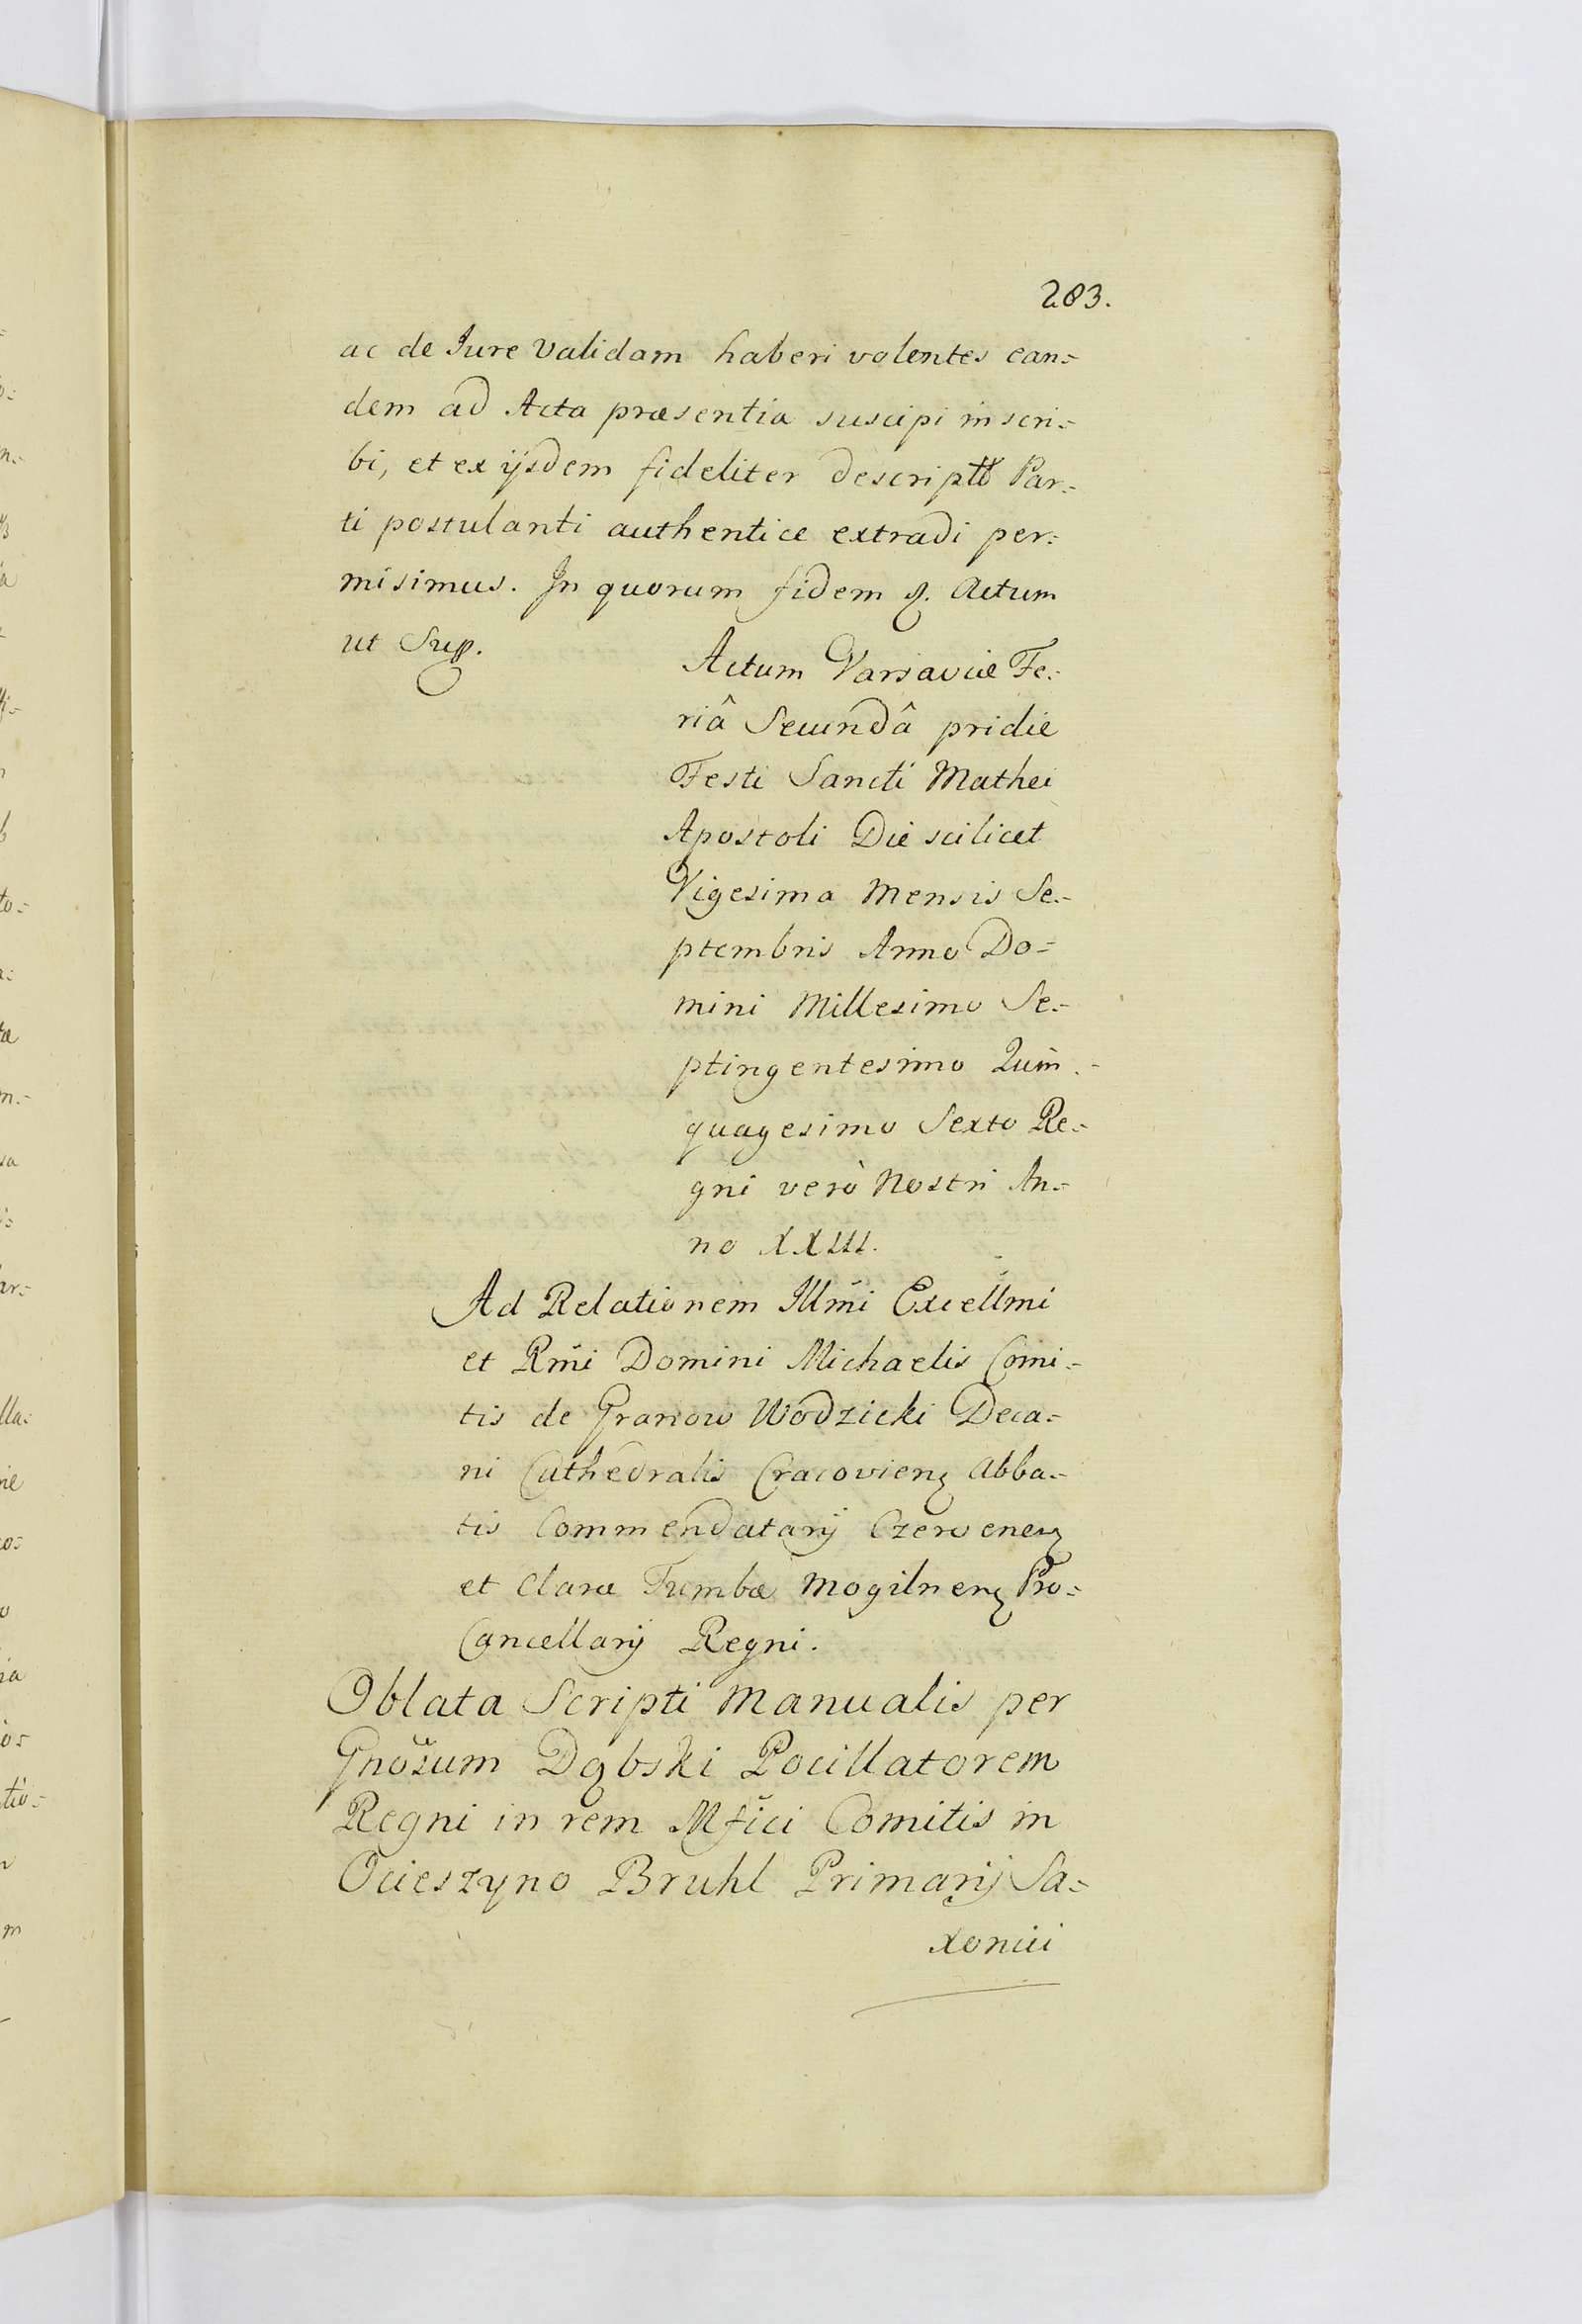 283.
ac de Iure validam haberi volentes ean=
dem ad Acta præsentia suscipi inscri=
bi, et ex ijsdem fideliter descriptt Par=
ti postulanti authentice extradi per=
misimus. In quorum fidem &. Actum
ut Sup.
Actum Varsaviæ Fe=
riâ Secundâ pridie
Festi Sancti Mathei
Apostoli Die scilicet
Vigesima Mensis Se=
ptembris Anno Do=
mini Millesimo Se=
ptingentesimo Quin=
quagesimo Sexto Re=
gni verò Nostri An=
no XXIII.
Ad Relationem Illmi Excellmi
et Rmi Domini Michaelis Comi=
tis de Granow Wodzicki Deca=
ni Cathedralis Cracovienꝫ Abba=
tis Commendatarij Czerwenenꝫ
et Claræ Tumbæ Mogilnenꝫ Pro=
Cancellarij Regni.
Oblata Scripti Manualis per
Gnosum Dąbski Pocillatorem
Regni in rem Mfici Comitis in
Ocieszyno Bruhl Primarij Sa=
xonici